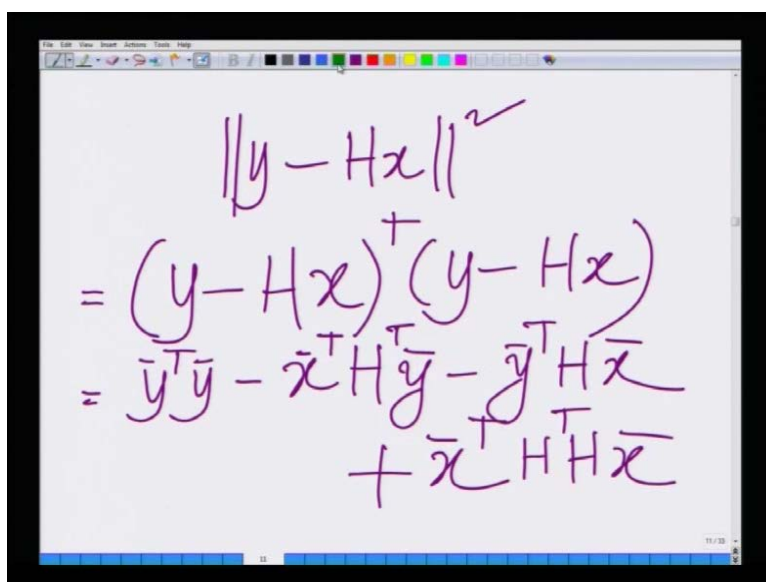 File Edit View Insert Actions Tools Help
B I
||y − Hx||²
= (y − Hx)ᵀ (y − Hx)
= ȳᵀȳ − x̄ᵀHᵀȳ − ȳᵀHx̄
+ x̄ᵀHᵀHx̄
11/33
11